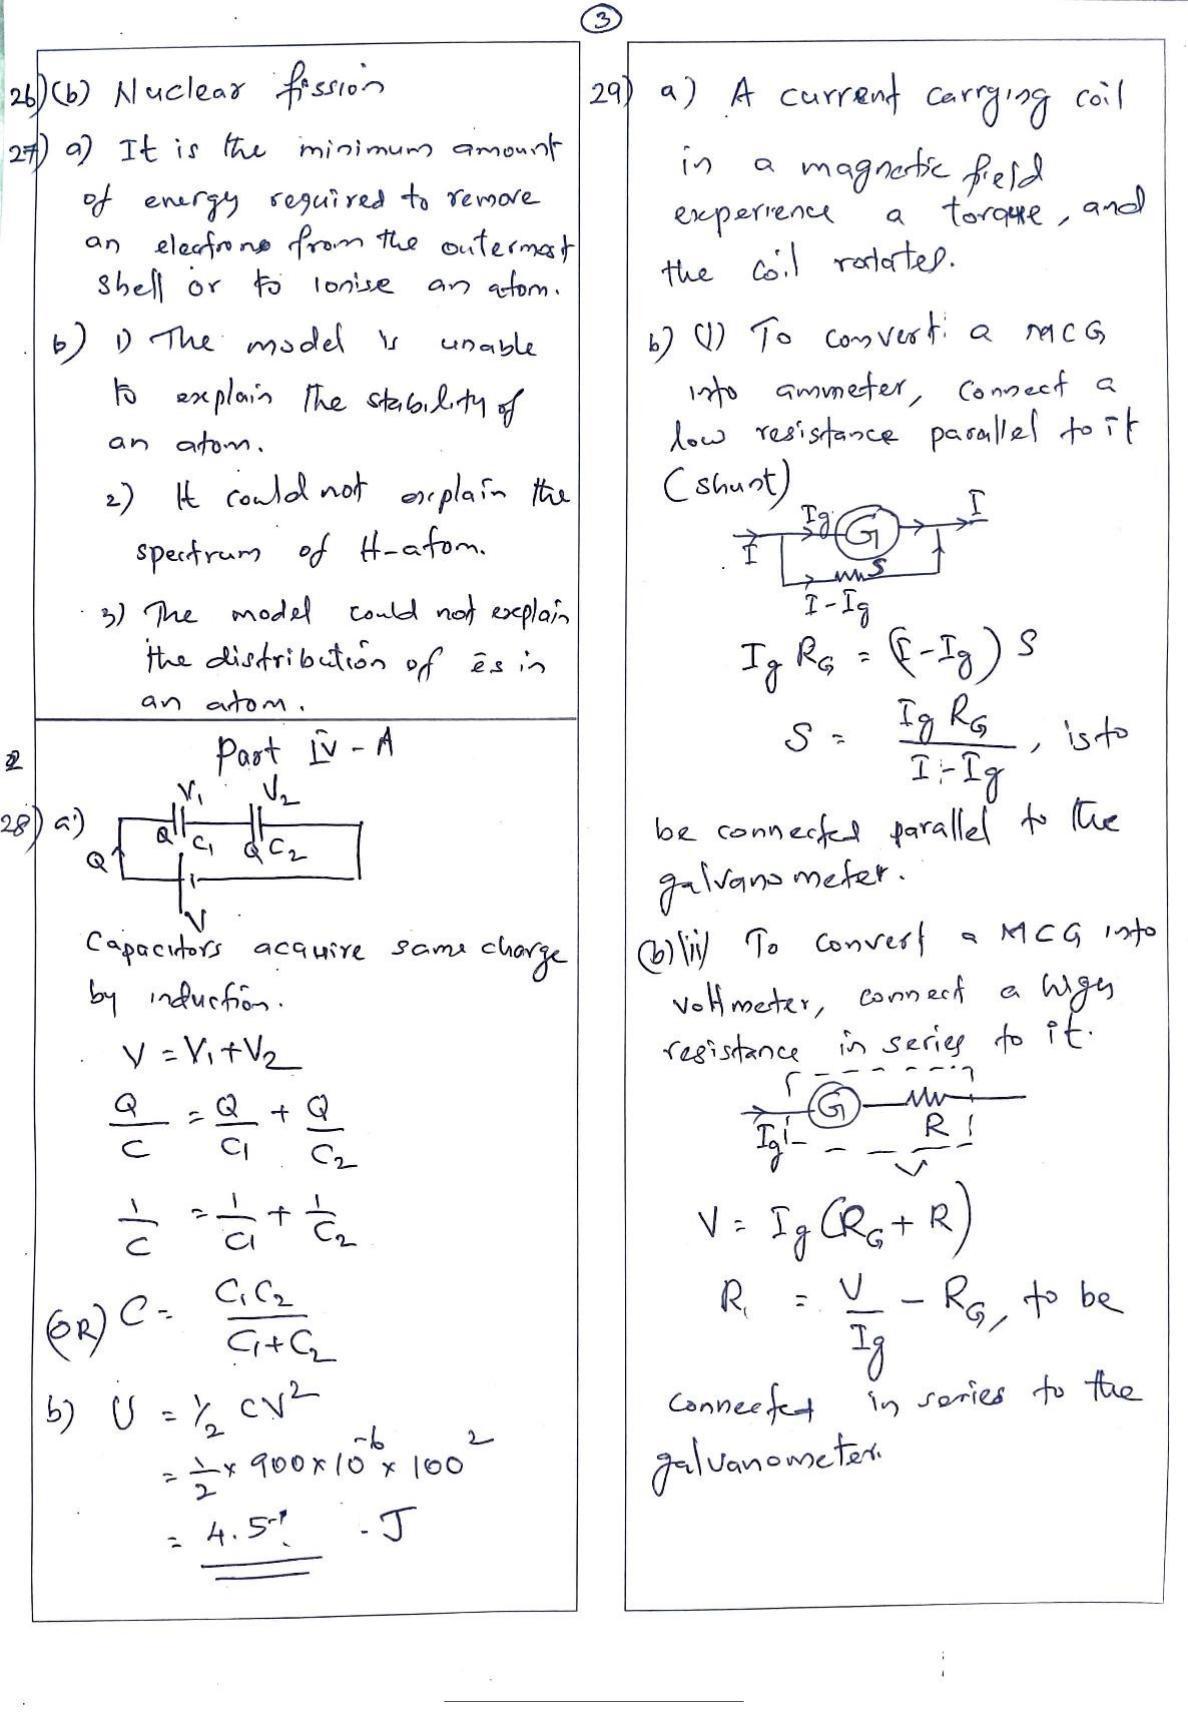 3
26) (b) Nuclear fission
27) a) It is the minimum amount
of energy required to remove
an electrons from the outermost
shell or to ionise an atom.
b) 1) The model is unable
to explain the stability of
an atom.
2) It could not explain the
spectrum of H-atom.
3) The model could not explain
the distribution of ēs in
an atom.
Part IV - A
28) a)
V1 V2
Q C1 Q C2
Q
V
Capacitors acquire same charge
by induction.
V = V1 + V2
Q/C = Q/C1 + Q/C2
1/C = 1/C1 + 1/C2
(OR) C = C1C2 / C1+C2
b) U = 1/2 CV²
= 1/2 × 900 × 10⁻⁶ × 100²
= 4.5 J
29) a) A current carrying coil
in a magnetic field
experience a torque, and
the coil rotated.
b) (i) To convert a MCG
into ammeter, connect a
low resistance parallel to it
(shunt)
Ig G I
I S
I-Ig
Ig RG = (I-Ig) S
S = Ig RG / I-Ig, is to
be connected parallel to the
galvanometer.
(b) (ii) To convert a MCG into
voltmeter, connect a high
resistance in series to it.
G
Ig R
V
V = Ig (RG + R)
R = V/Ig - RG, to be
connected in series to the
galvanometer.